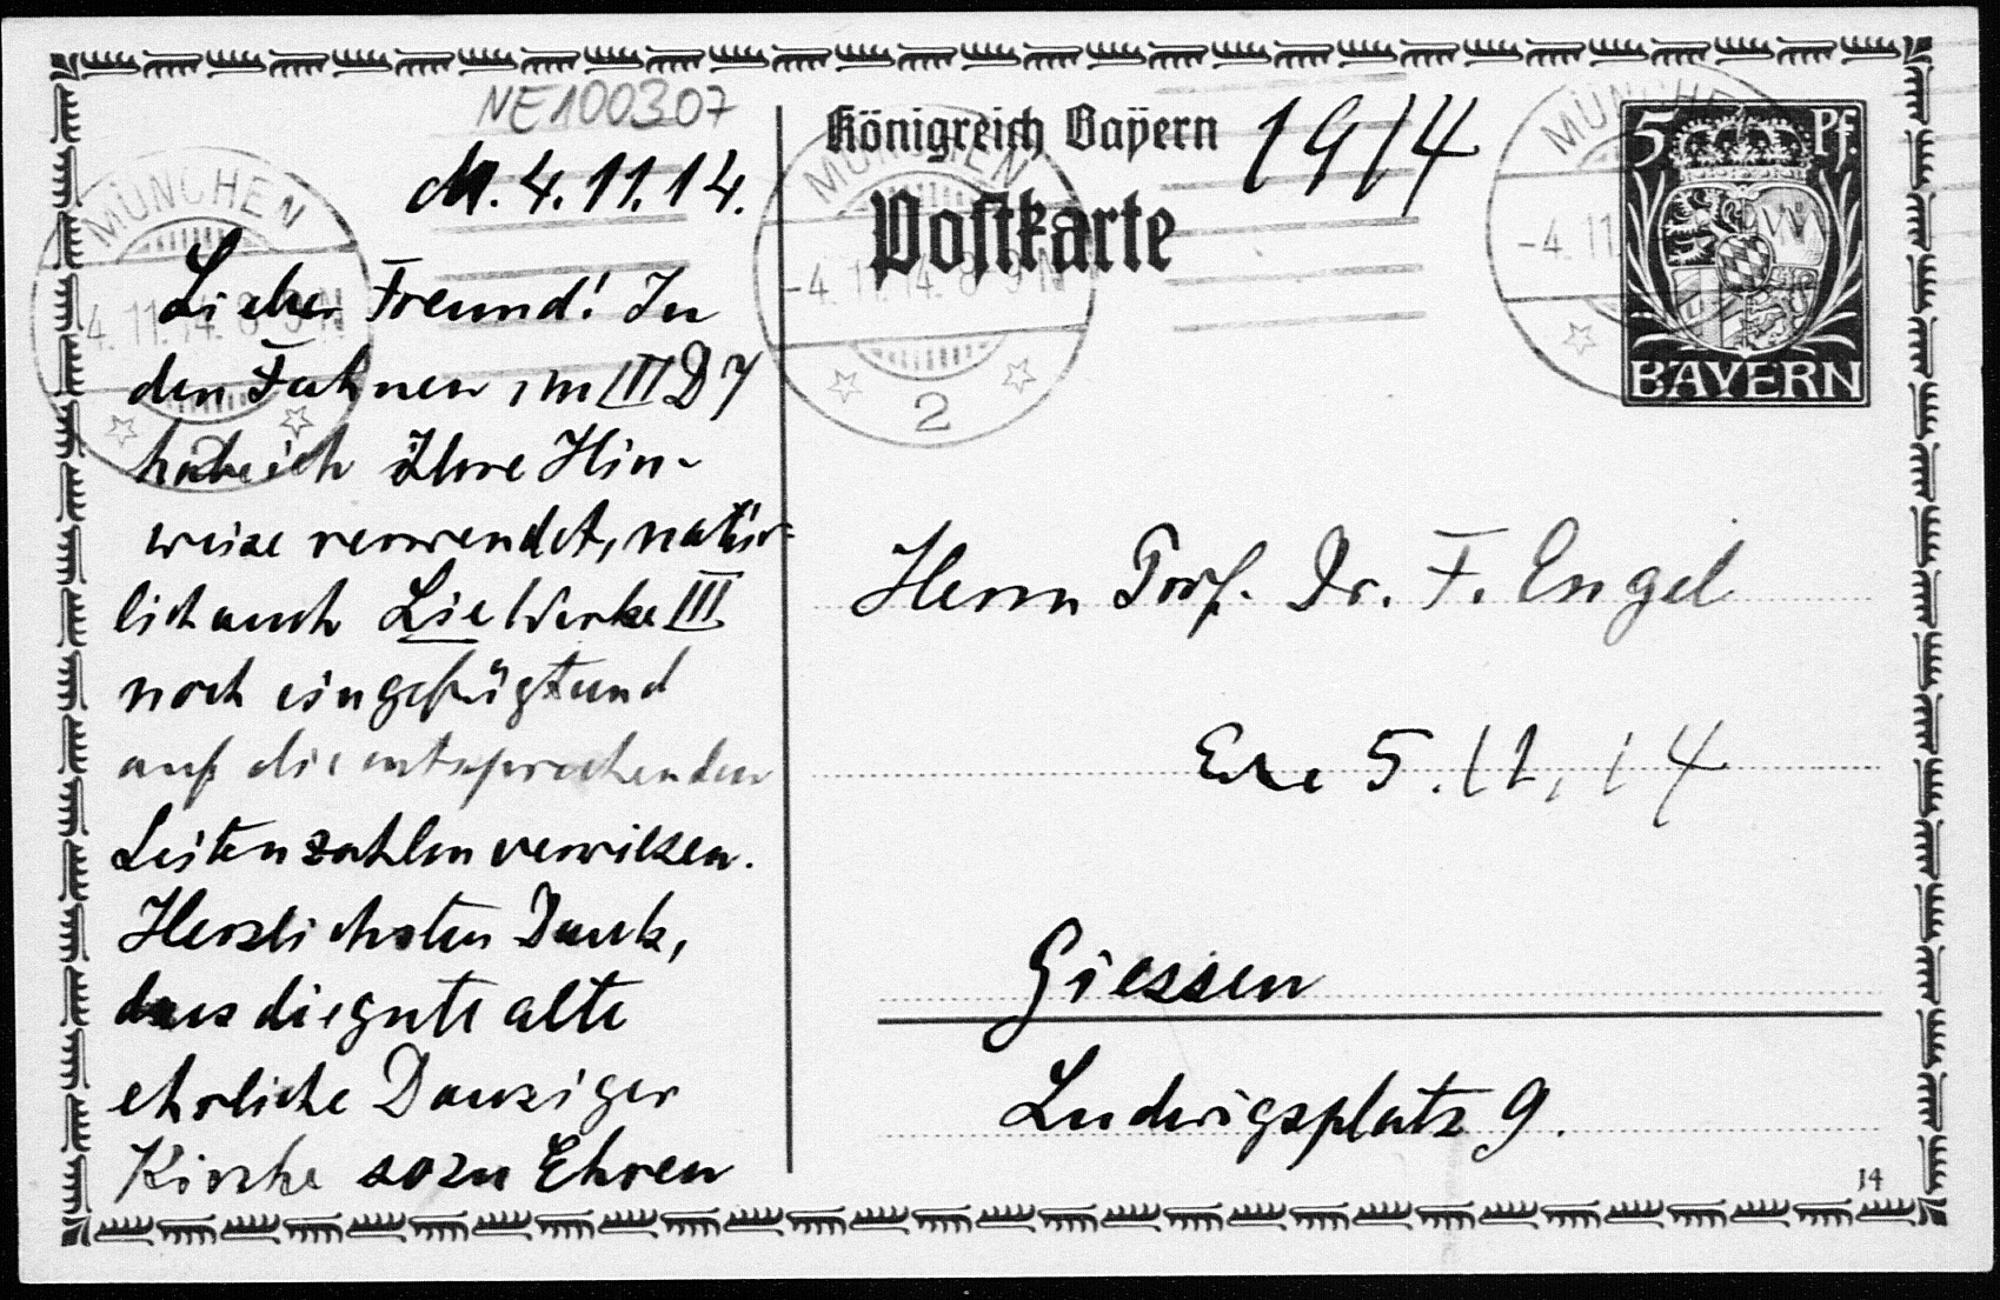 NE100307
M. 4.11.14.
Lieber Freund! In
den Fahnen im III D 7
habe ich Ihre Hin-
weise verwendet, natür-
lich auch Lie Werke III
noch eingefügt und
auf die entsprechenden
Seitenzahlen verwiesen.
Herzlichsten Dank,
dass die gute alte
ehrliche Danziger
Kirche so zu Ehren
Königreich Bayern 1914
Postkarte
5 Pf.
BAYERN
MÜNCHEN
4.11.14. 8-9 N
MÜNCHEN
-4.11.14. 8-9 N
2
MÜNCHEN
-4.11
Herrn Prof. Dr. F. Engel
5.11.14
Giessen
Ludwigsplatz 9.
14